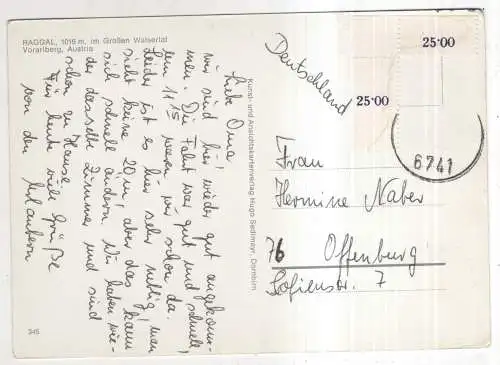 RAGGAL, 1016 m, im Großen Walsertal
Vorarlberg, Austria
Liebe Oma!
wir sind hier wieder gut angekom-
men. Die Fahrt war gut und schnell,
um 11.15 waren wir schon da.
Leider ist es hier sehr neblig, man
sieht keine 20 m, aber das kann
sich schnell ändern. Wir haben wie-
der dasselbe Zimmer und sind
schon zu Hause
Für heute viele Grüße
von den
345
Kunst- und Ansichtskartenverlag Hugo Sedlmayr, Dornbirn
25·00
25·00
6741
Deutschland
Frau
Hermine Naber
76 Offenburg
Sofienstr. 7